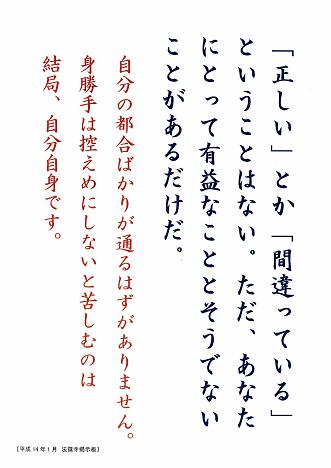 「正しい」とか「間違っている」
ということはない。ただ、あなた
にとって有益なこととそうでない
ことがあるだけだ。
自分の都合ばかりが通るはずがありません。
身勝手は控えめにしないと苦しむのは
結局、自分自身です。
［平成14年1月 法復寺掲示板］